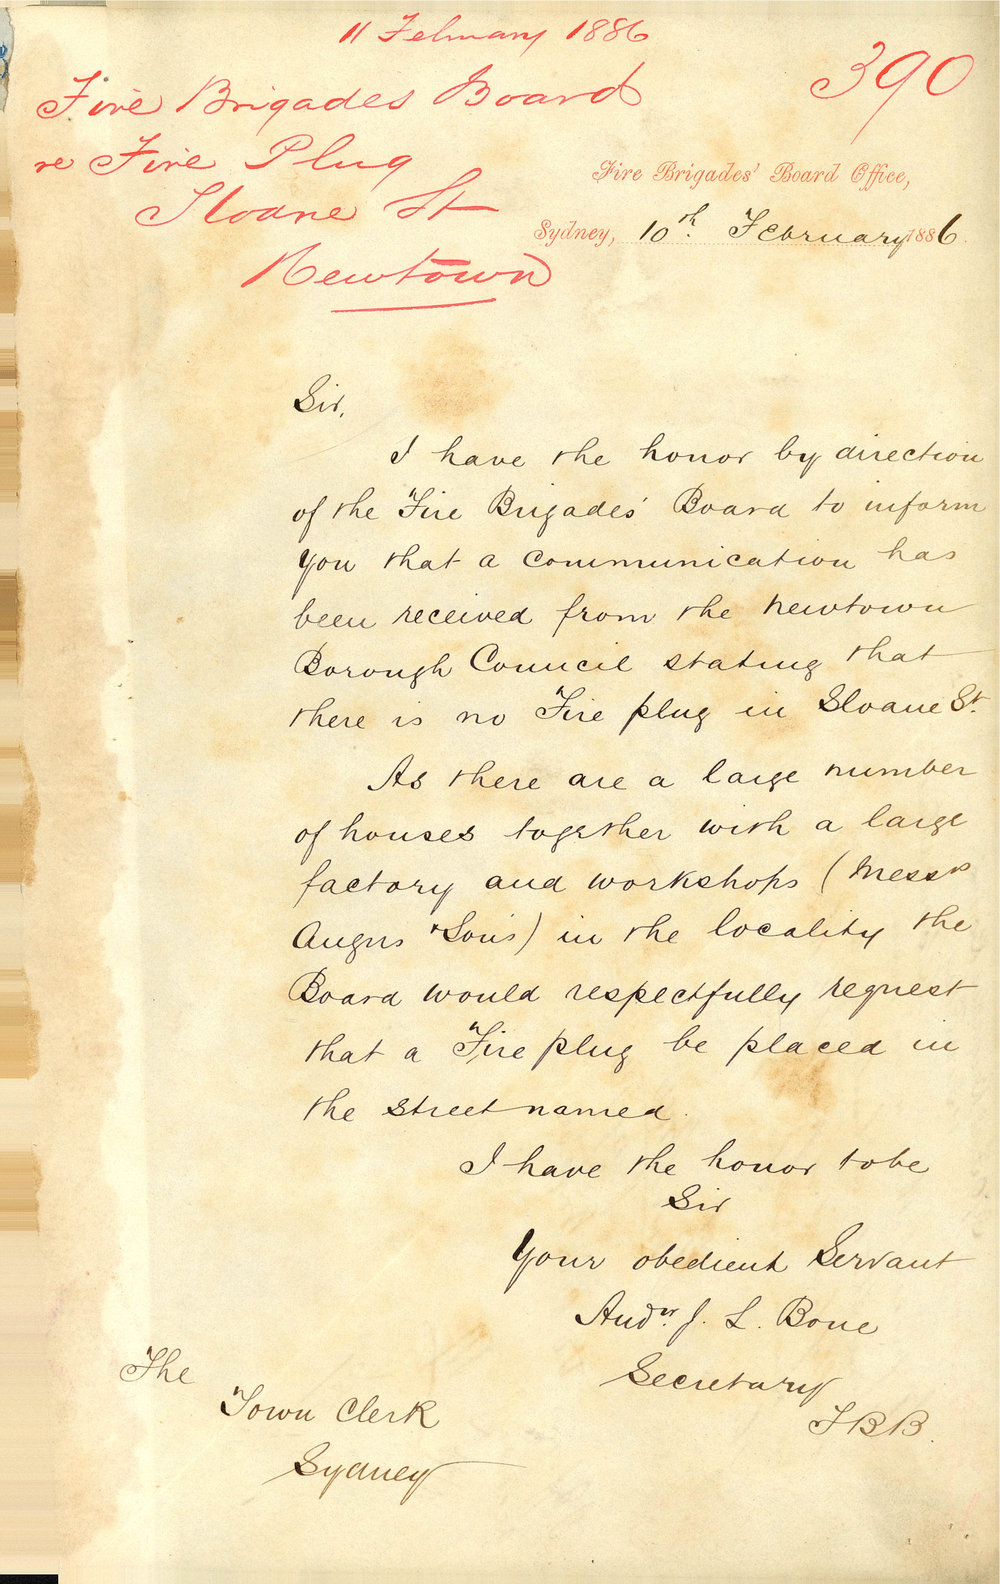 11 February 1886
390
Fire Brigades Board
re Fire Plug
Sloane St
Newtown
Fire Brigades' Board Office,
Sydney, 10th February 1886.
Sir,
I have the honor by direction
of the Fire Brigades' Board to inform
you that a communication has
been received from the Newtown
Borough Council stating that
there is no Fire plug in Sloane St.
As there are a large number
of houses together with a large
factory and workshops (Messrs
Angus & Son's) in the locality the
Board would respectfully request
that a Fire plug be placed in
the street named.
I have the honor to be
Sir
Your obedient Servant
Andw. J. L. Bone
Secretary
FBB.
The
Town Clerk
Sydney